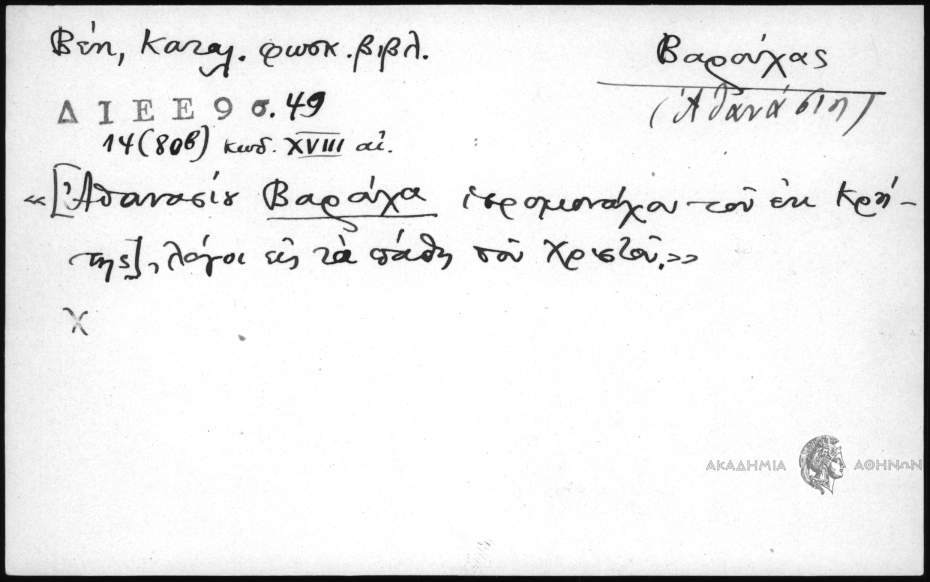 Βέη, Καταλ. φωσκ. βιβλ.
Βαρούχας
(Ἀθανάσιη)
ΔΙΕΕ 9 σ. 49
14 (80β) κωδ. XVIII αἰ.
«[Ἀθανασίου Βαρούχα ἱερομονάχου τοῦ ἐκ Κρή-
της], λόγοι εἰς τὰ πάθη τοῦ Χριστοῦ.»
χ
ΑΚΑΔΗΜΙΑ ΑΘΗΝΩΝ